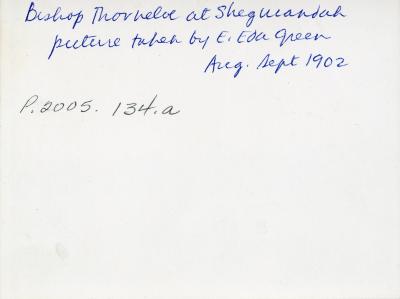 Bishop Thorneloe at Sheguiandah
picture taken by E. Eda Green
Aug. Sept 1902
P.2005. 134.a